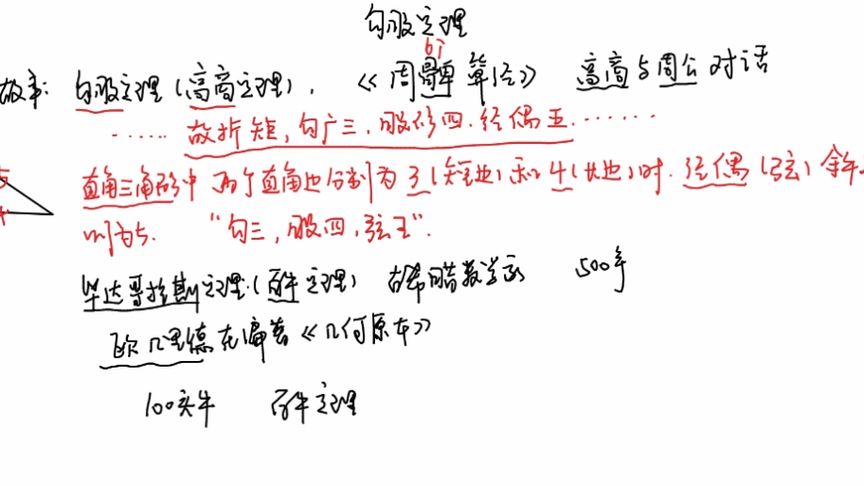 勾股定理
bì
故事: 勾股定理(高高定理), 《周髀算径》 高高与周公对话
...... 故折矩,勾广三,股修四,径偶五.......
直角三角形中 两个直角边分别为3(短边)和4(长边)时.径偶(弦)
则为5. “勾三,股四,弦五”.
毕达哥拉斯定理.(百牛定理) 古希腊数学家 500年
欧几里德在编著《几何原本》
100头牛 百牛定理